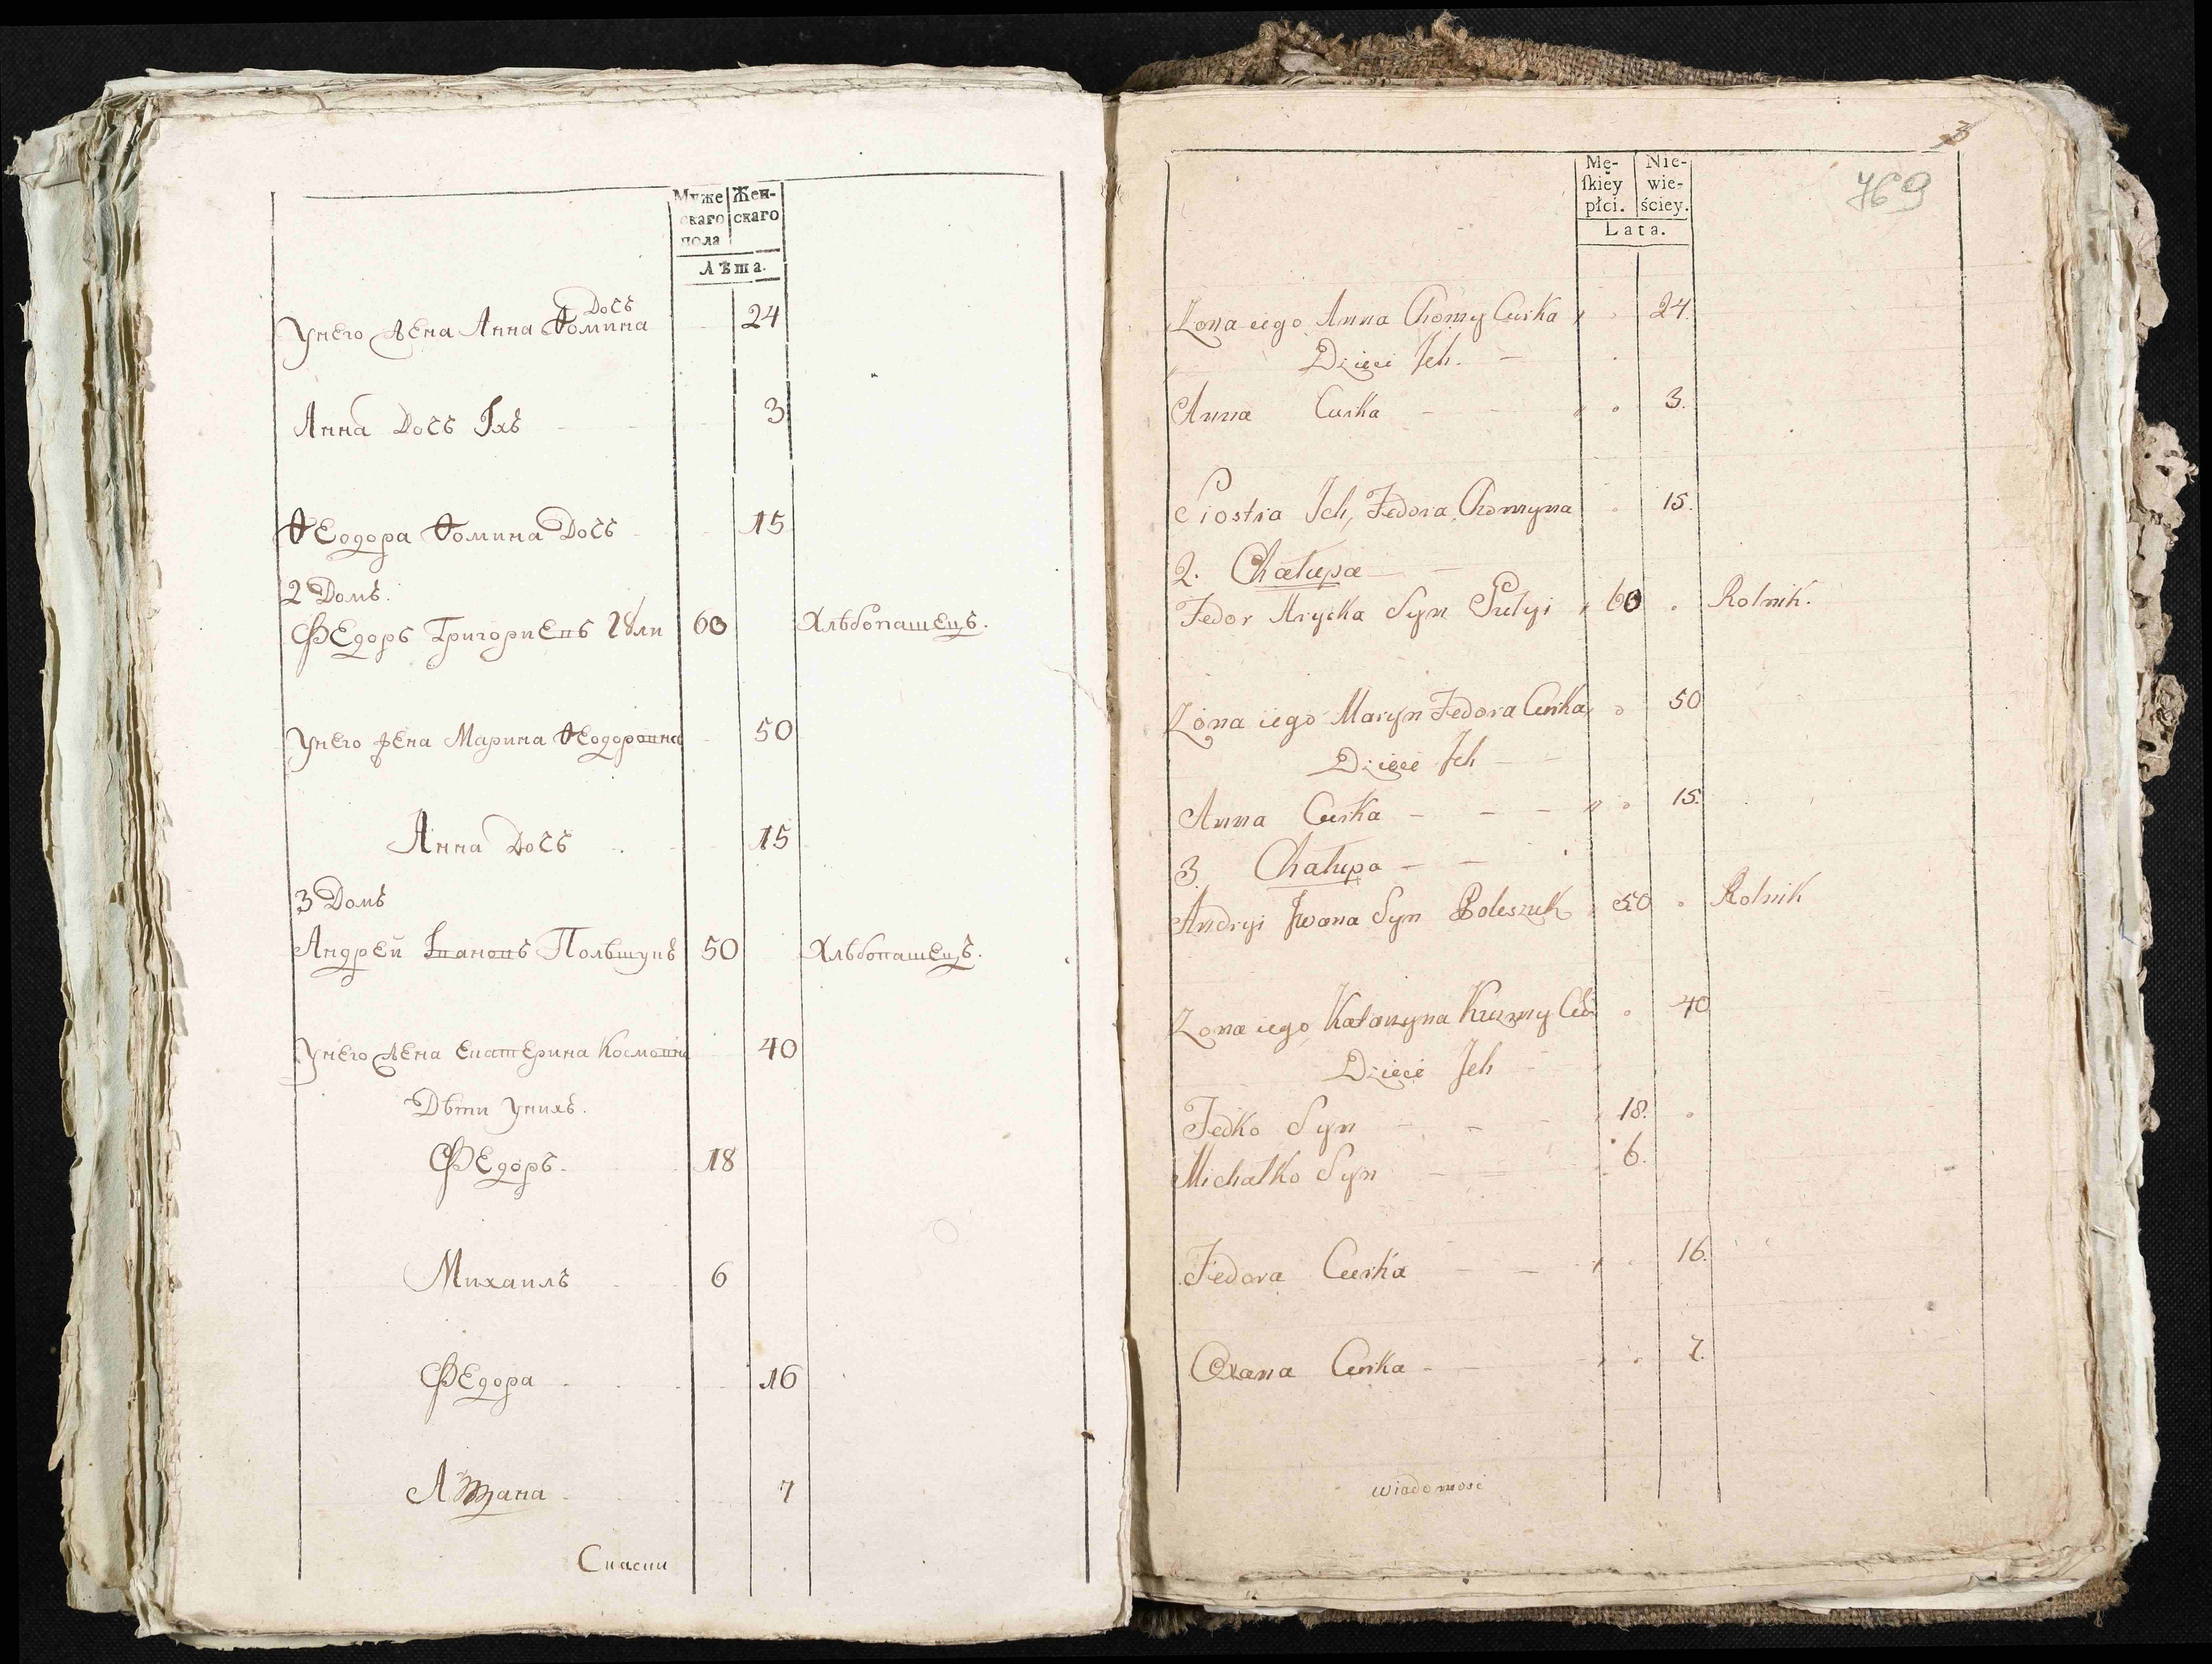 Муже
скаго
пола
Жен-
скаго
Лѣта.
Дочь
Унего жена Анна Ѳомина 24
Анна Дочь Іхъ 3
Ѳеодора Ѳомина Дочь 15
2 Домъ.
Федоръ Григориевъ 60 Хлѣбопашецъ.
Унего жена Марина Ѳеодоровна 50
Анна Дочь 15
3 Домъ
Андрей Івановъ 50 Хлѣбопашецъ.
Унего жена Екатерина Космовна 40
Дѣти унихъ.
Федоръ 18
Михаилъ 6
Федора 16
7
3
769
Mę-
ſkiéy
płci.
Nie-
wie-
ściey.
Lata.
Zona iego Anna Chomy Curka 24.
Dzieci Ich.
Anna Curka 3.
Siostra Ich, Fedora Chomyna 15.
2. Chałupa
Fedor Hrycka Syn 60 Rolnik.
Zona iego Maryn Fedora Curka 50
Dzieci Ich
Anna Curka 15.
3. Chałupa
Andryi Iwana Syn Poleszuk 50 Rolnik
Zona iego Katarzyna Kuzmy 40
Dzieci Ich
Fedko Syn 18.
Michałko Syn 6.
Fedora Curka 16.
Oxana Curka 7.
wiadomość